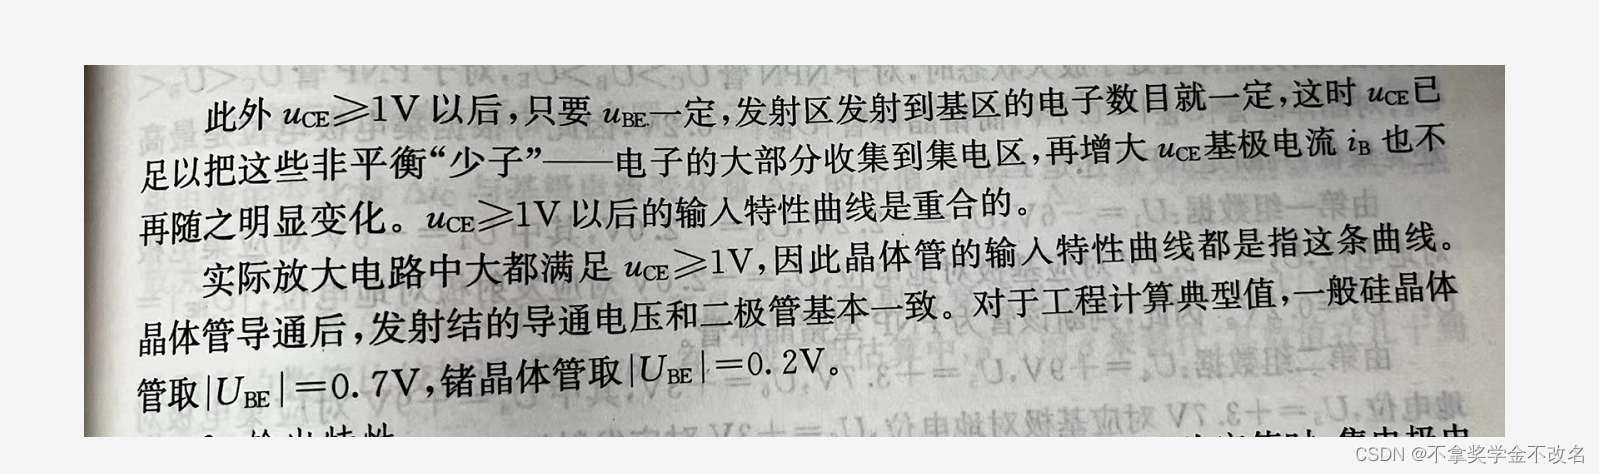 此外 uCE⩾1V 以后,只要 uBE一定,发射区发射到基区的电子数目就一定,这时 uCE已
足以把这些非平衡“少子”——电子的大部分收集到集电区,再增大 uCE基极电流 iB 也不
再随之明显变化。uCE⩾1V 以后的输入特性曲线是重合的。
实际放大电路中大都满足 uCE⩾1V,因此晶体管的输入特性曲线都是指这条曲线。
晶体管导通后,发射结的导通电压和二极管基本一致。对于工程计算典型值,一般硅晶体
管取|UBE|=0.7V,锗晶体管取|UBE|=0.2V。
CSDN @不拿奖学金不改名